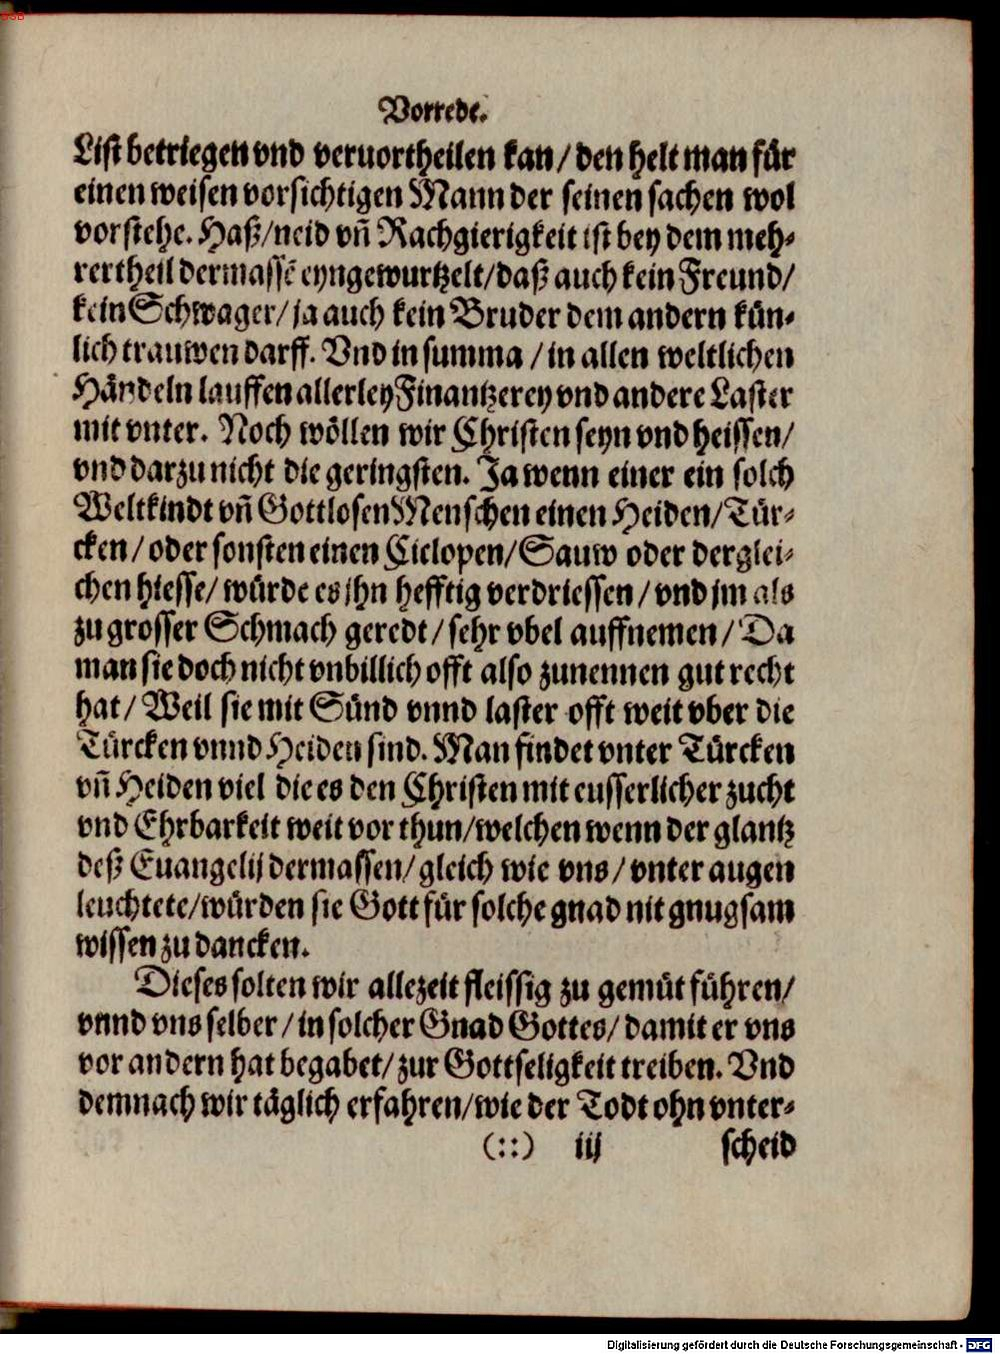 BSB
Vorrede.
List betriegen vnd veruortheilen kan/ den helt man für
einen weisen vorsichtigen Mann der seinen sachen wol
vorstehe. Haß/neid vñ Rachgierigkeit ist bey dem meh⸗
rertheil dermassẽ eyngewurtzelt/daß auch kein Freund/
kein Schwager/ ja auch kein Bruder dem andern kün⸗
lich trauwen darff. Vnd in summa / in allen weltlichen
Händeln lauffen allerley Finantzerey vnd andere Laster
mit vnter. Noch wöllen wir Christen seyn vnd heissen/
vnd darzu nicht die geringsten. Ja wenn einer ein solch
Weltkindt vñ Gottlosen Menschen einen Heiden/Tür⸗
cken/ oder sonsten einen Ciclopen/Sauw oder derglei⸗
chen hiesse/ würde es jhn hefftig verdriessen / vnd jm als
zu grosser Schmach geredt/ sehr vbel auffnemen/ Da
man sie doch nicht vnbillich offt also zunennen gut recht
hat/ Weil sie mit Sünd vnnd laster offt weit vber die
Türcken vnnd Heiden sind. Man findet vnter Türcken
vñ Heiden viel die es den Christen mit eusserlicher zucht
vnd Ehrbarkeit weit vor thun/welchen wenn der glantz
deß Euangelij dermassen/ gleich wie vns/ vnter augen
leuchtete/würden sie Gott für solche gnad nit gnugsam
wissen zu dancken.
Dieses solten wir allezeit fleissig zu gemüt führen/
vnnd vns selber/ in solcher Gnad Gottes/ damit er vns
vor andern hat begabet/ zur Gottseligkeit treiben. Vnd
demnach wir täglich erfahren/wie der Todt ohn vnter⸗
(::) iij scheid
Digitalisierung gefördert durch die Deutsche Forschungsgemeinschaft - DFG